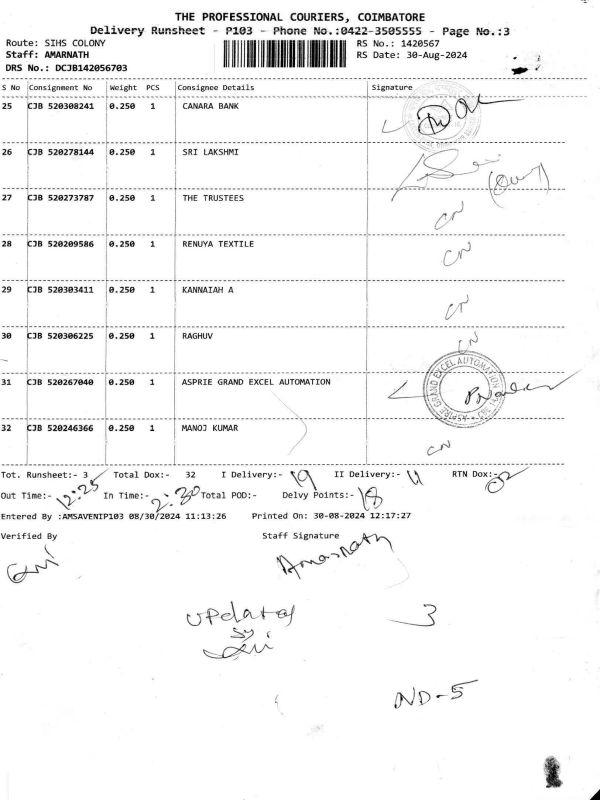 THE PROFESSIONAL COURIERS, COIMBATORE
Delivery Runsheet - P103 - Phone No.:0422-3505555 - Page No.:3
Route: SIHS COLONY RS No.: 1420567
Staff: AMARNATH RS Date: 30-Aug-2024
DRS No.: DCJB142056703
S No Consignment No Weight PCS Consignee Details Signature
25 CJB 520308241 0.250 1 CANARA BANK
26 CJB 520278144 0.250 1 SRI LAKSHMI
27 CJB 520273787 0.250 1 THE TRUSTEES CN
28 CJB 520209586 0.250 1 RENUYA TEXTILE CN
29 CJB 520303411 0.250 1 KANNAIAH A CN
30 CJB 520306225 0.250 1 RAGHUV CN
31 CJB 520267040 0.250 1 ASPRIE GRAND EXCEL AUTOMATION
ASPIRE GRAND EXCEL AUTOMATION
32 CJB 520246366 0.250 1 MANOJ KUMAR CN
Tot. Runsheet:- 3 Total Dox:- 32 I Delivery:- 19 II Delivery:- 11 RTN Dox:- 02
Out Time:- 12:25 In Time:- 2:30 Total POD:- Delvy Points:- 18
Entered By :AMSAVENIP103 08/30/2024 11:13:26 Printed On: 30-08-2024 12:17:27
Verified By Staff Signature
Amarnath
Updated 3
By
ND-5